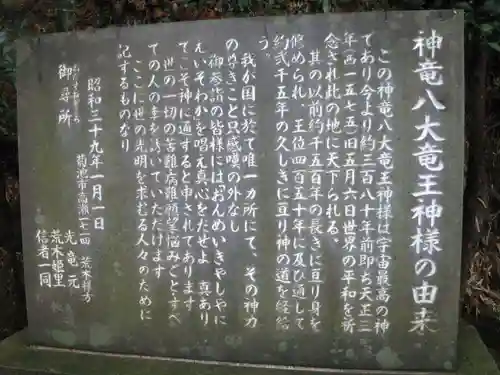 神竜八大竜王神様の由来
この神竜八大竜王神様は宇宙最高の神
であり今より約三百八十年前即ち天正三
年西一五七五旧五月六日世界の平和を祈
念され此の地に天下られる。
其の以前約千五百年の長きに亘り身を
修められ、王位四百五十年に及び通して
約弐千五年の久しきに亘り神の道を経給
う。
我が国に於て唯一カ所にて、その神力
の尊きこと只感嘆の外なし
御参詣の皆様にはおんめいきやしやに
えいそわかを唱え真心をたせよ 真あり
てこそ神に通ずると申されてあります
世の一切の苦難病難願望悩みごとすべ
ての人の幸を誘いていただけます
ここに世の光明を求むる人々のために
記するものなり
昭和三十九年一月一日
御尋所
菊池市高瀬二七四 荒木種方
光竜元
荒木照里
信者一同